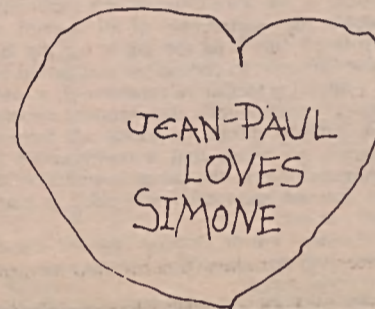 JEAN-PAUL
LOVES
SIMONE